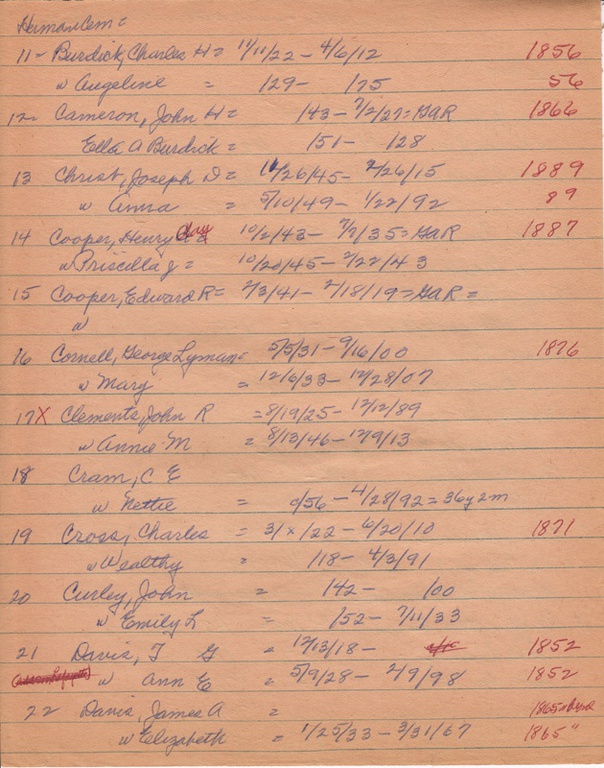 Herman Cem =
11 - Burdick, Charles H = 11/11/22 - 4/6/12 1856
w Angeline = /29 - /25 56
12 - Cameron, John H = /43 - 7/2/27 = GAR 1866
Ella A Burdick = /51 - /28
13 Christ, Joseph D = 11/26/45 - 2/26/15 1889
w Anna = 5/10/49 - 1/22/92 89
14 Cooper, Henry Clay = 10/2/43 - 7/2/35 = GAR 1887
w Priscilla J = 10/20/45 - 2/22/43
15 Cooper, Edward R = 2/3/41 - 2/18/19 = GAR =
w
16 Cornell, George Lyman = 5/5/31 - 9/16/00 1876
w Mary = 12/6/33 - 12/28/07
17 X Clements, John R = 8/19/25 - 12/12/89
w Annie M = 8/13/46 - 12/9/13
18 Cram, C E
w Nettie = c/56 - 4/28/92 = 36y 2m
19 Cross, Charles = 3/x/22 - 6/20/10 1871
w Wealthy = /18 - 4/3/91
20 Curley, John = /42 - /00
w Emily L = /52 - 7/11/33
21 Davis, T G = 12/13/18 - 1852
w Ann E = 5/9/28 - 2/9/98 1852
22 Davis, James A = 1865
w Elizabeth = 1/25/33 - 3/31/67 1865 "